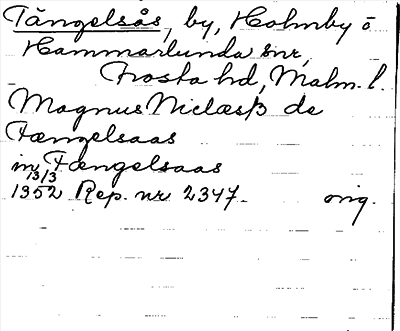 Tängelsås, by, Holmby o
Hammarlunda snr,
Frosta hd, Malm. l.
Magnus Niclæsß de
Fængelsaas
in Fængelsaas
13/3
1352 Rep. nr 2347. orig.